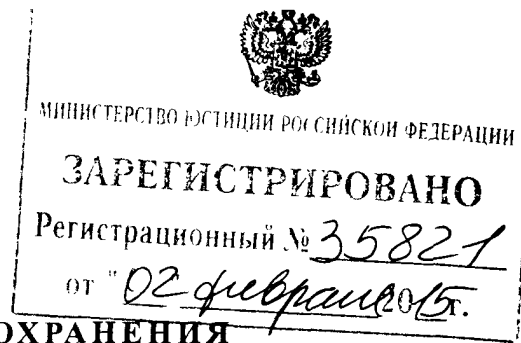 МИНИСТЕРСТВО ЮСТИЦИИ РОССИЙСКОЙ ФЕДЕРАЦИИ
ЗАРЕГИСТРИРОВАНО
Регистрационный № 35821
от "02 февраля 2015г.
ОХРАНЕНИЯ